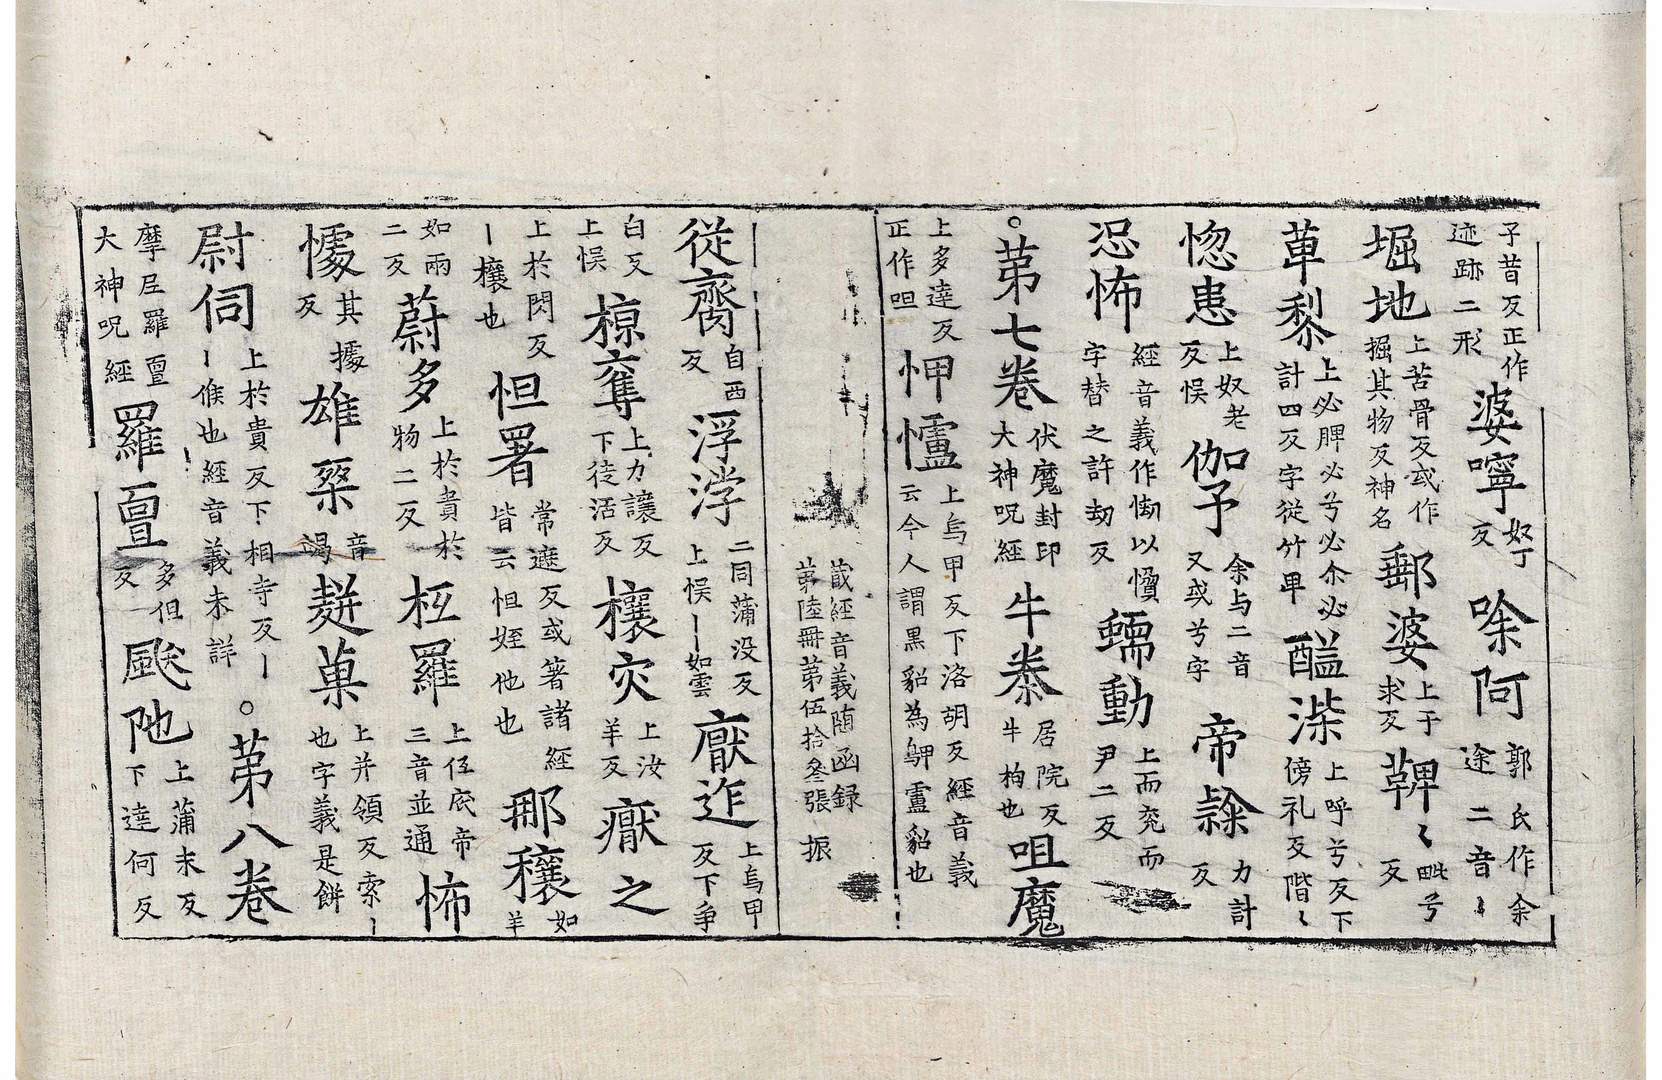 子昔反正作迹跡二形婆嚀奴丁反嗱阿郭氏作余途二音丨
堀地上苦骨反或作掘其物反神名郵婆上于求反鞞〻毗兮反
萆黎上必脾必兮必尒必計四反字從竹卑醯漇上呼兮反下傍礼反階〻
惚恚上奴老反悮伽予余与二音又或兮字帝隸力計反
恐怖經音義作惱以懫字替之許劫反蠕動上而兖而尹二反
○苐七卷伏魔封印大神呪經牛桊居院反牛枸也呾魔
上多達反正作呾㤉㦬上烏甲反下洛胡反經音義云今人謂黑貂為䶝盧貂也
藏經音義随函録
苐陸冊苐伍拾叄張 振
從齎自西反浮浡二同蒲没反上悮丨如雲厭迮上烏甲反下争
白反上悮椋奪上力讓反下徒活反欀灾上汝羊反㾤之
上於閃反丨欀也怛署常遮反或著諸經皆云怛姪他也那穰如羊
如兩二反蔚多上於貴於物二反柾羅上伍底帝三音並通怖
懅其據反雄桀音竭䴵菓上并領反索丨也字義是餅
尉伺上於貴反下相寺反丨丨候也經音義未詳○苐八卷
摩尼羅亶大神呪經羅亶多但反颰陁上蒲末反下達何反